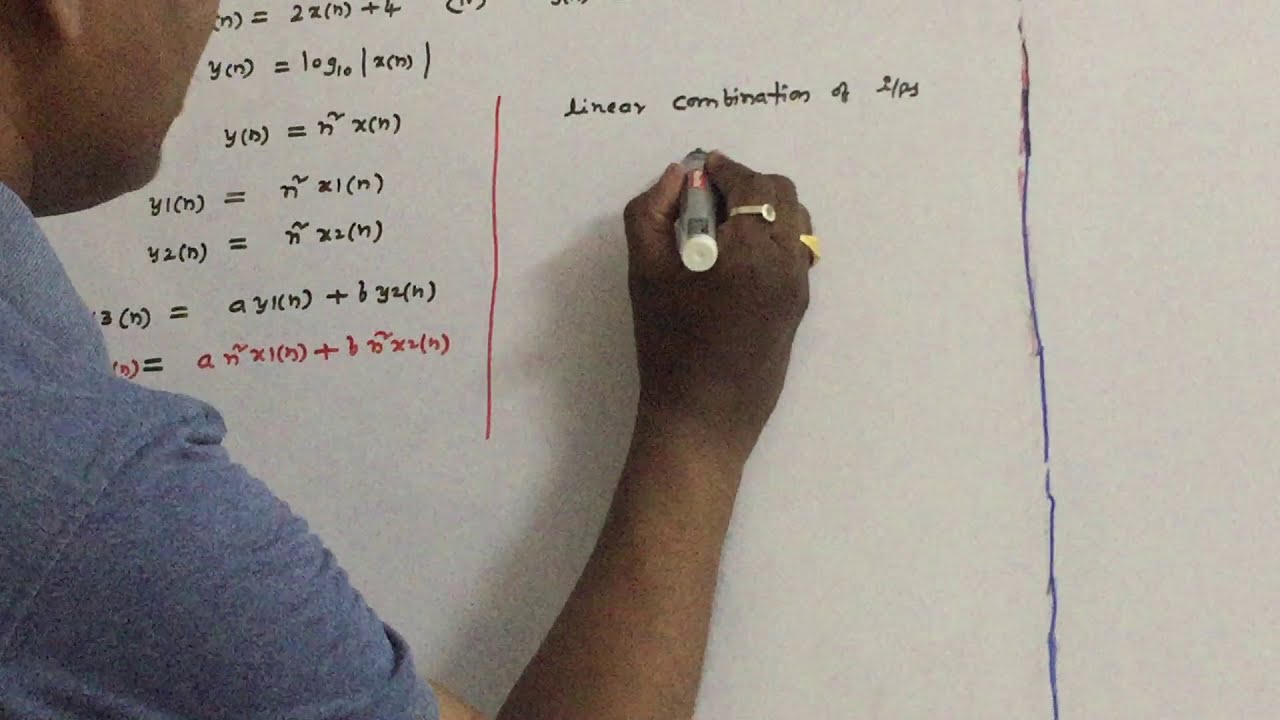 (n) = 2x(n) + 4 (n)
y(n) = log₁₀ |x(n)|
y(n) = n² x(n)
y1(n) = n² x1(n)
y2(n) = n² x2(n)
3(n) = a y1(n) + b y2(n)
(n) = a n² x1(n) + b n² x2(n)
linear combination of i/ps